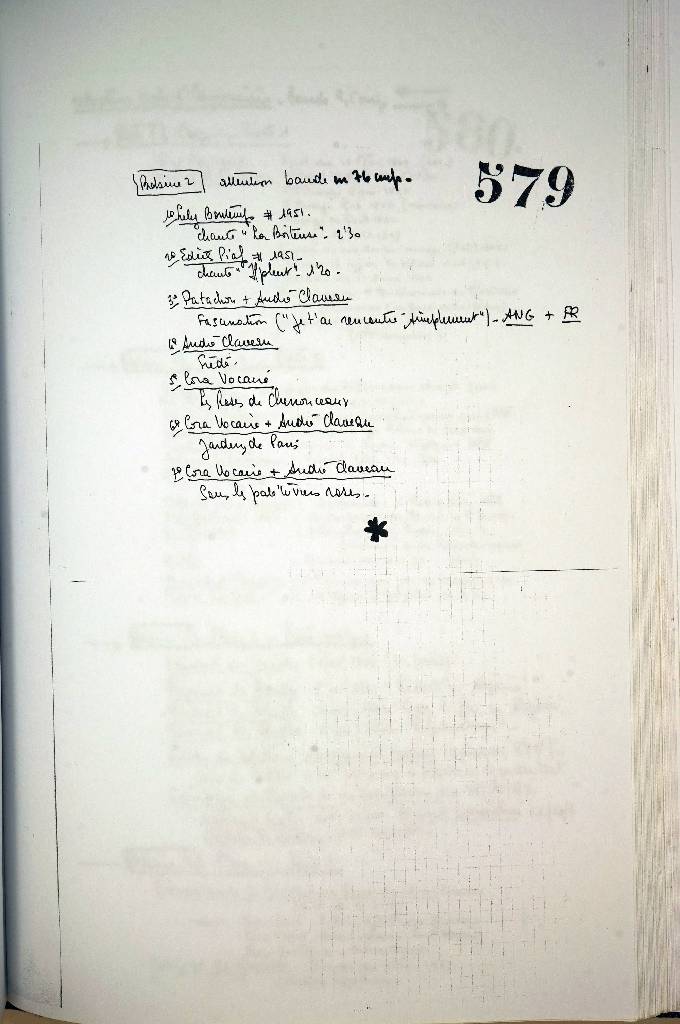 579
Bobine 2 attention bande en 76 cm/s.
1º Lely Bontemps # 1951.
chante "La Boiteuse". 2'30
2º Edith Piaf # 1951.
chante "Il pleut". 1'20.
3º Patachou + André Claveau
Fascination ("Je t'ai rencontré simplement"). ANG + FR
4º André Claveau
Frédé.
5º Cora Vocaire
Les Roses de Chenonceaux
6º Cora Vocaire + André Claveau
Jardins de Paris
7º Cora Vocaire + André Claveau
Sous les palétuviers roses.
*